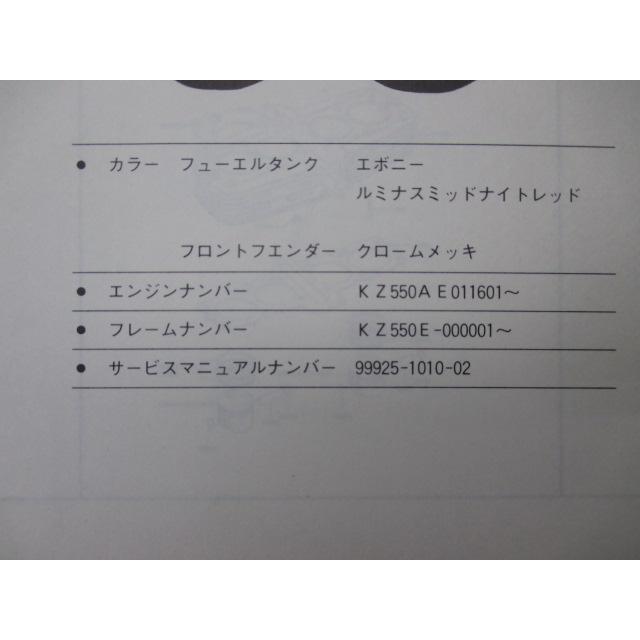 ● カラー フューエルタンク エボニー
ルミナスミッドナイトレッド
フロントフエンダー クロームメッキ
● エンジンナンバー KZ550AE011601～
● フレームナンバー KZ550E-000001～
● サービスマニュアルナンバー 99925-1010-02